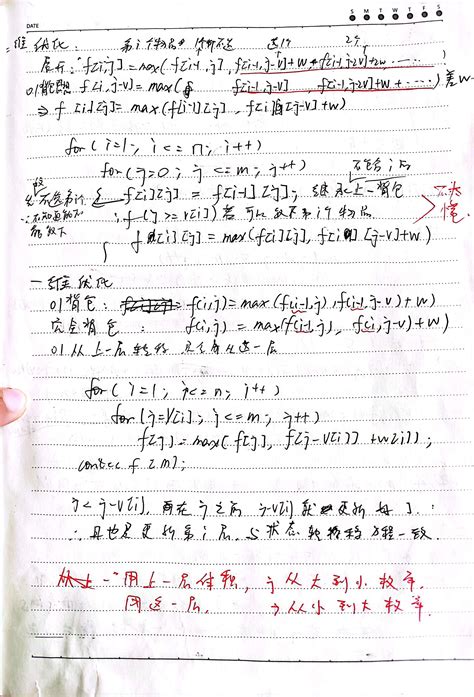 DATE
S M T W T F S
二维优化: 第i个物品 不选 选1个 2个
展开: f[i,j]=max(f[i-1,j], f[i-1,j-v]+w, f[i-1,j-2v]+2w, ……)
f[i,j-v]=max( f[i-1,j-v], f[i-1,j-2v]+w+……) 差w
⇒ f[i][j]=max(f[i-1][j], f[i][j-v]+w)
for(i=1; i<=n; i++)
for(j=0; j<=m; j++)
不包含i的
{ f[i][j] = f[i-1][j]; 继承上一背包
if(j>=v[i]) 若可以放下第i个物品
不太懂
f[i][j]=max(f[i][j], f[i][j-v]+w)
一维优化
01背包: f(i,j)=max(f(i-1,j), f(i-1,j-v)+w)
完全背包: f(i,j)=max(f(i-1,j), f(i,j-v)+w)
01从上一层转移
for(i=1; i<=n; i++)
for(j=v[i]; j<=m; j++)
f[j]=max(f[j], f[j-v[i]]+w[i]);
f[m];
j-v[i], 而在j之前 j-v[i]
∴ 其也是更新第i层, 与状态转移方程一致.
用上一层体积, j从大到小枚举.
用这一层. → 从小到大枚举.